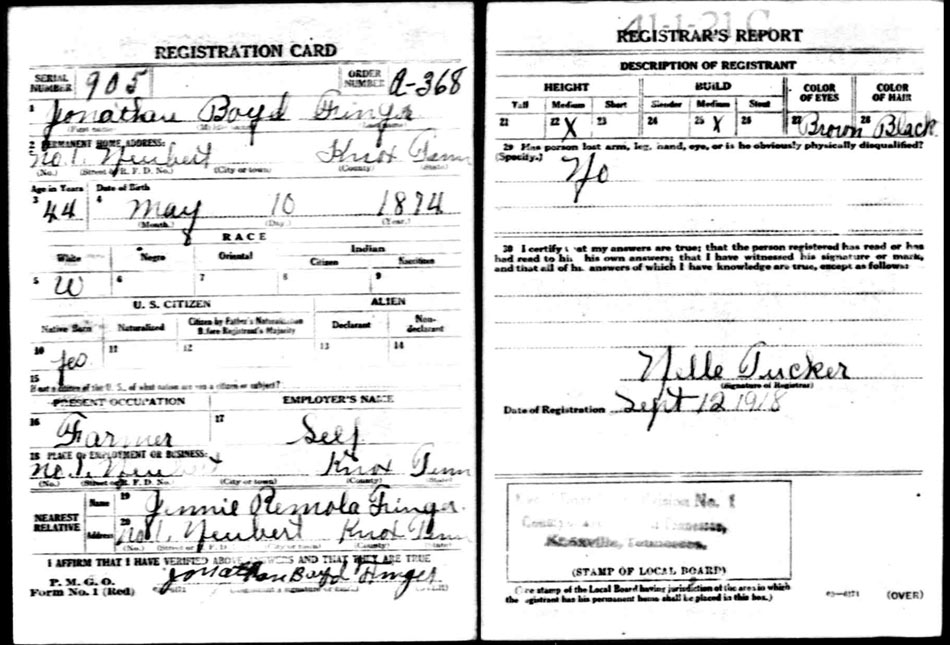 REGISTRATION CARD
SERIAL NUMBER 905 ORDER NUMBER A-368
1 Jonathan Boyd Finger
(First name) (Middle name) (Last name)
2 PERMANENT HOME ADDRESS:
No. 1. Neubert Knox Tenn
(No.) (Street or R. F. D. No.) (City or town) (County) (State)
Age in Years Date of Birth
3 44 4 May 10 1874
(Month.) (Day.) (Year.)
8
RACE
White Negro Oriental Indian
Citizen Noncitizen
5 W 6 7 8 9
U. S. CITIZEN ALIEN
Native Born Naturalized Citizen by Father's Naturalization Before Registrant's Majority Declarant Non-declarant
10 Yes 11 12 13 14
15
If not a citizen of the U. S., of what nation are you a citizen or subject?
PRESENT OCCUPATION EMPLOYER'S NAME
16 Farmer 17 Self
18 PLACE OF EMPLOYMENT OR BUSINESS:
No. 1. Neubert Knox Tenn
(No.) (Street or R. F. D. No.) (City or town) (County) (State)
NEAREST RELATIVE Name 19 Jennie Remola Finger
Address 20 No. 1. Neubert Knox Tenn
(No.) (Street or R. F. D. No.) (City or town) (County) (State)
I AFFIRM THAT I HAVE VERIFIED ABOVE ANSWERS AND THAT THEY ARE TRUE
P. M. G. O.
Form No. 1 (Red) Jonathan Boyd Finger
(Registrant's signature or mark)
41-1-21 C
REGISTRAR'S REPORT
DESCRIPTION OF REGISTRANT
HEIGHT BUILD COLOR OF EYES COLOR OF HAIR
Tall Medium Short Slender Medium Stout
21 22 X 23 24 25 X 26 27 Brown 28 Black
29 Has person lost arm, leg, hand, eye, or is he obviously physically disqualified?
(Specify.)
No
30 I certify that my answers are true; that the person registered has read or has
had read to him his own answers; that I have witnessed his signature or mark,
and that all of his answers of which I have knowledge are true, except as follows:
Nelle Tucker
(Signature of Registrar)
Date of Registration Sept 12 1918
Division No. 1
Knoxville, Tennessee.
(STAMP OF LOCAL BOARD)
(The stamp of the Local Board having jurisdiction of the area in which
the registrant has his permanent home shall be placed in this box.)
63-6171 (OVER)